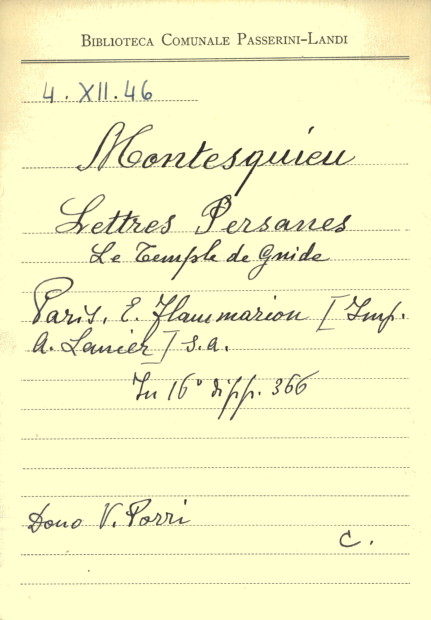 BIBLIOTECA COMUNALE PASSERINI-LANDI
4. XII. 46
Montesquieu
Lettres Persanes
Le Temple de Gnide
Paris, E. Flammarion [Imp.
A. Lanier] s.a.
In 16° di pp. 366
Dono V. Porri
C.